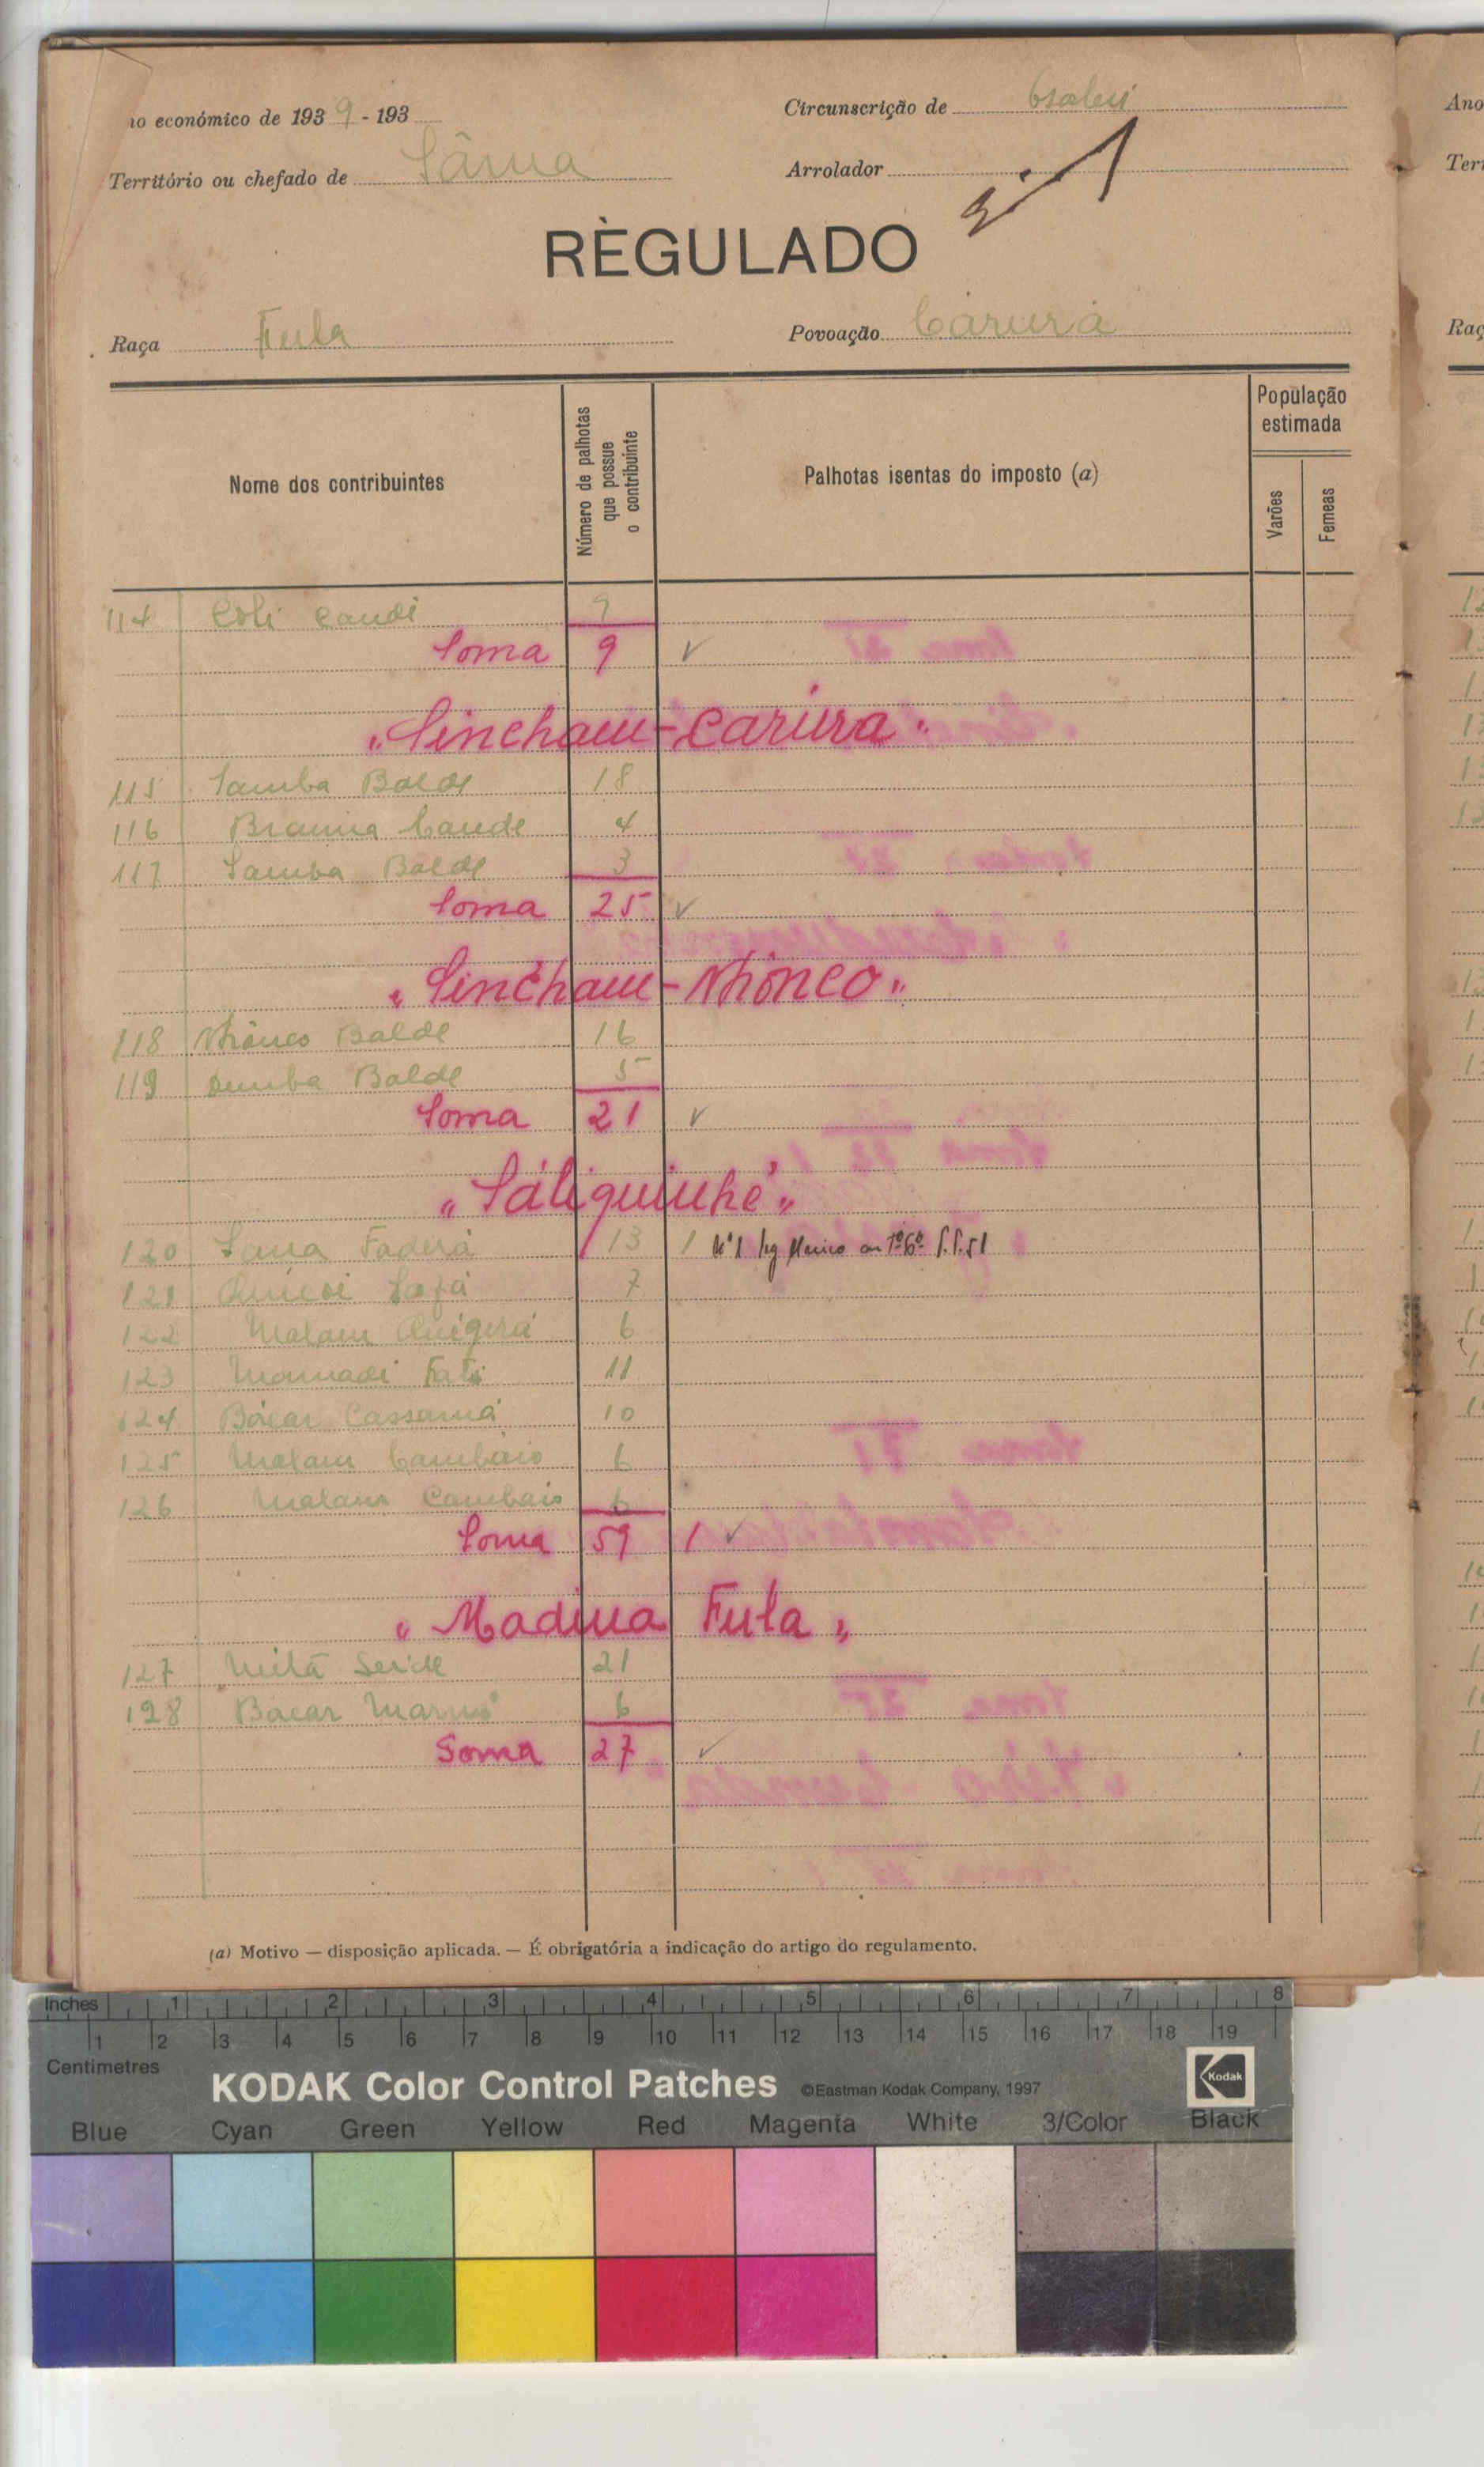 no económico de 1939-193
Circunscrição de
Território ou chefado de Sâma
Arrolador
RÈGULADO
Raça Fula
Povoação Carura
Nome dos contribuintes
Número de palhotas que possue o contribuinte
Palhotas isentas do imposto (a)
População estimada
Varões
Femeas
114 Coli Candi 9
Soma 9 ✓
"Sincham-Carura"
115 Samba Balde 18
116 Brauma Cande 4
117 Samba Balde 3
Soma 25 ✓
"Sincham-Nhónco"
118 Nhónco Balde 16
119 Demba Balde 5
Soma 21 ✓
"Sáliquinhé"
120 Sana Faderá 13 1 Nº 1
121 7
122 Malam 6
123 Mamadi Fati 11
124 Bácar Cassamá 10
125 Malam Cambáio 6
126 Malam Cambaio 6
Soma 59 1 ✓
"Madina Fula"
127 Seide 21
128 Bácar 6
Soma 27 ✓
(a) Motivo — disposição aplicada. — É obrigatória a indicação do artigo do regulamento.
Inches 1 2 3 4 5 6 7 8
1 2 3 4 5 6 7 8 9 10 11 12 13 14 15 16 17 18 19
Centimetres
KODAK Color Control Patches ©Eastman Kodak Company, 1997 Kodak
Blue Cyan Green Yellow Red Magenta White 3/Color Black
Ano
Terr
Raç